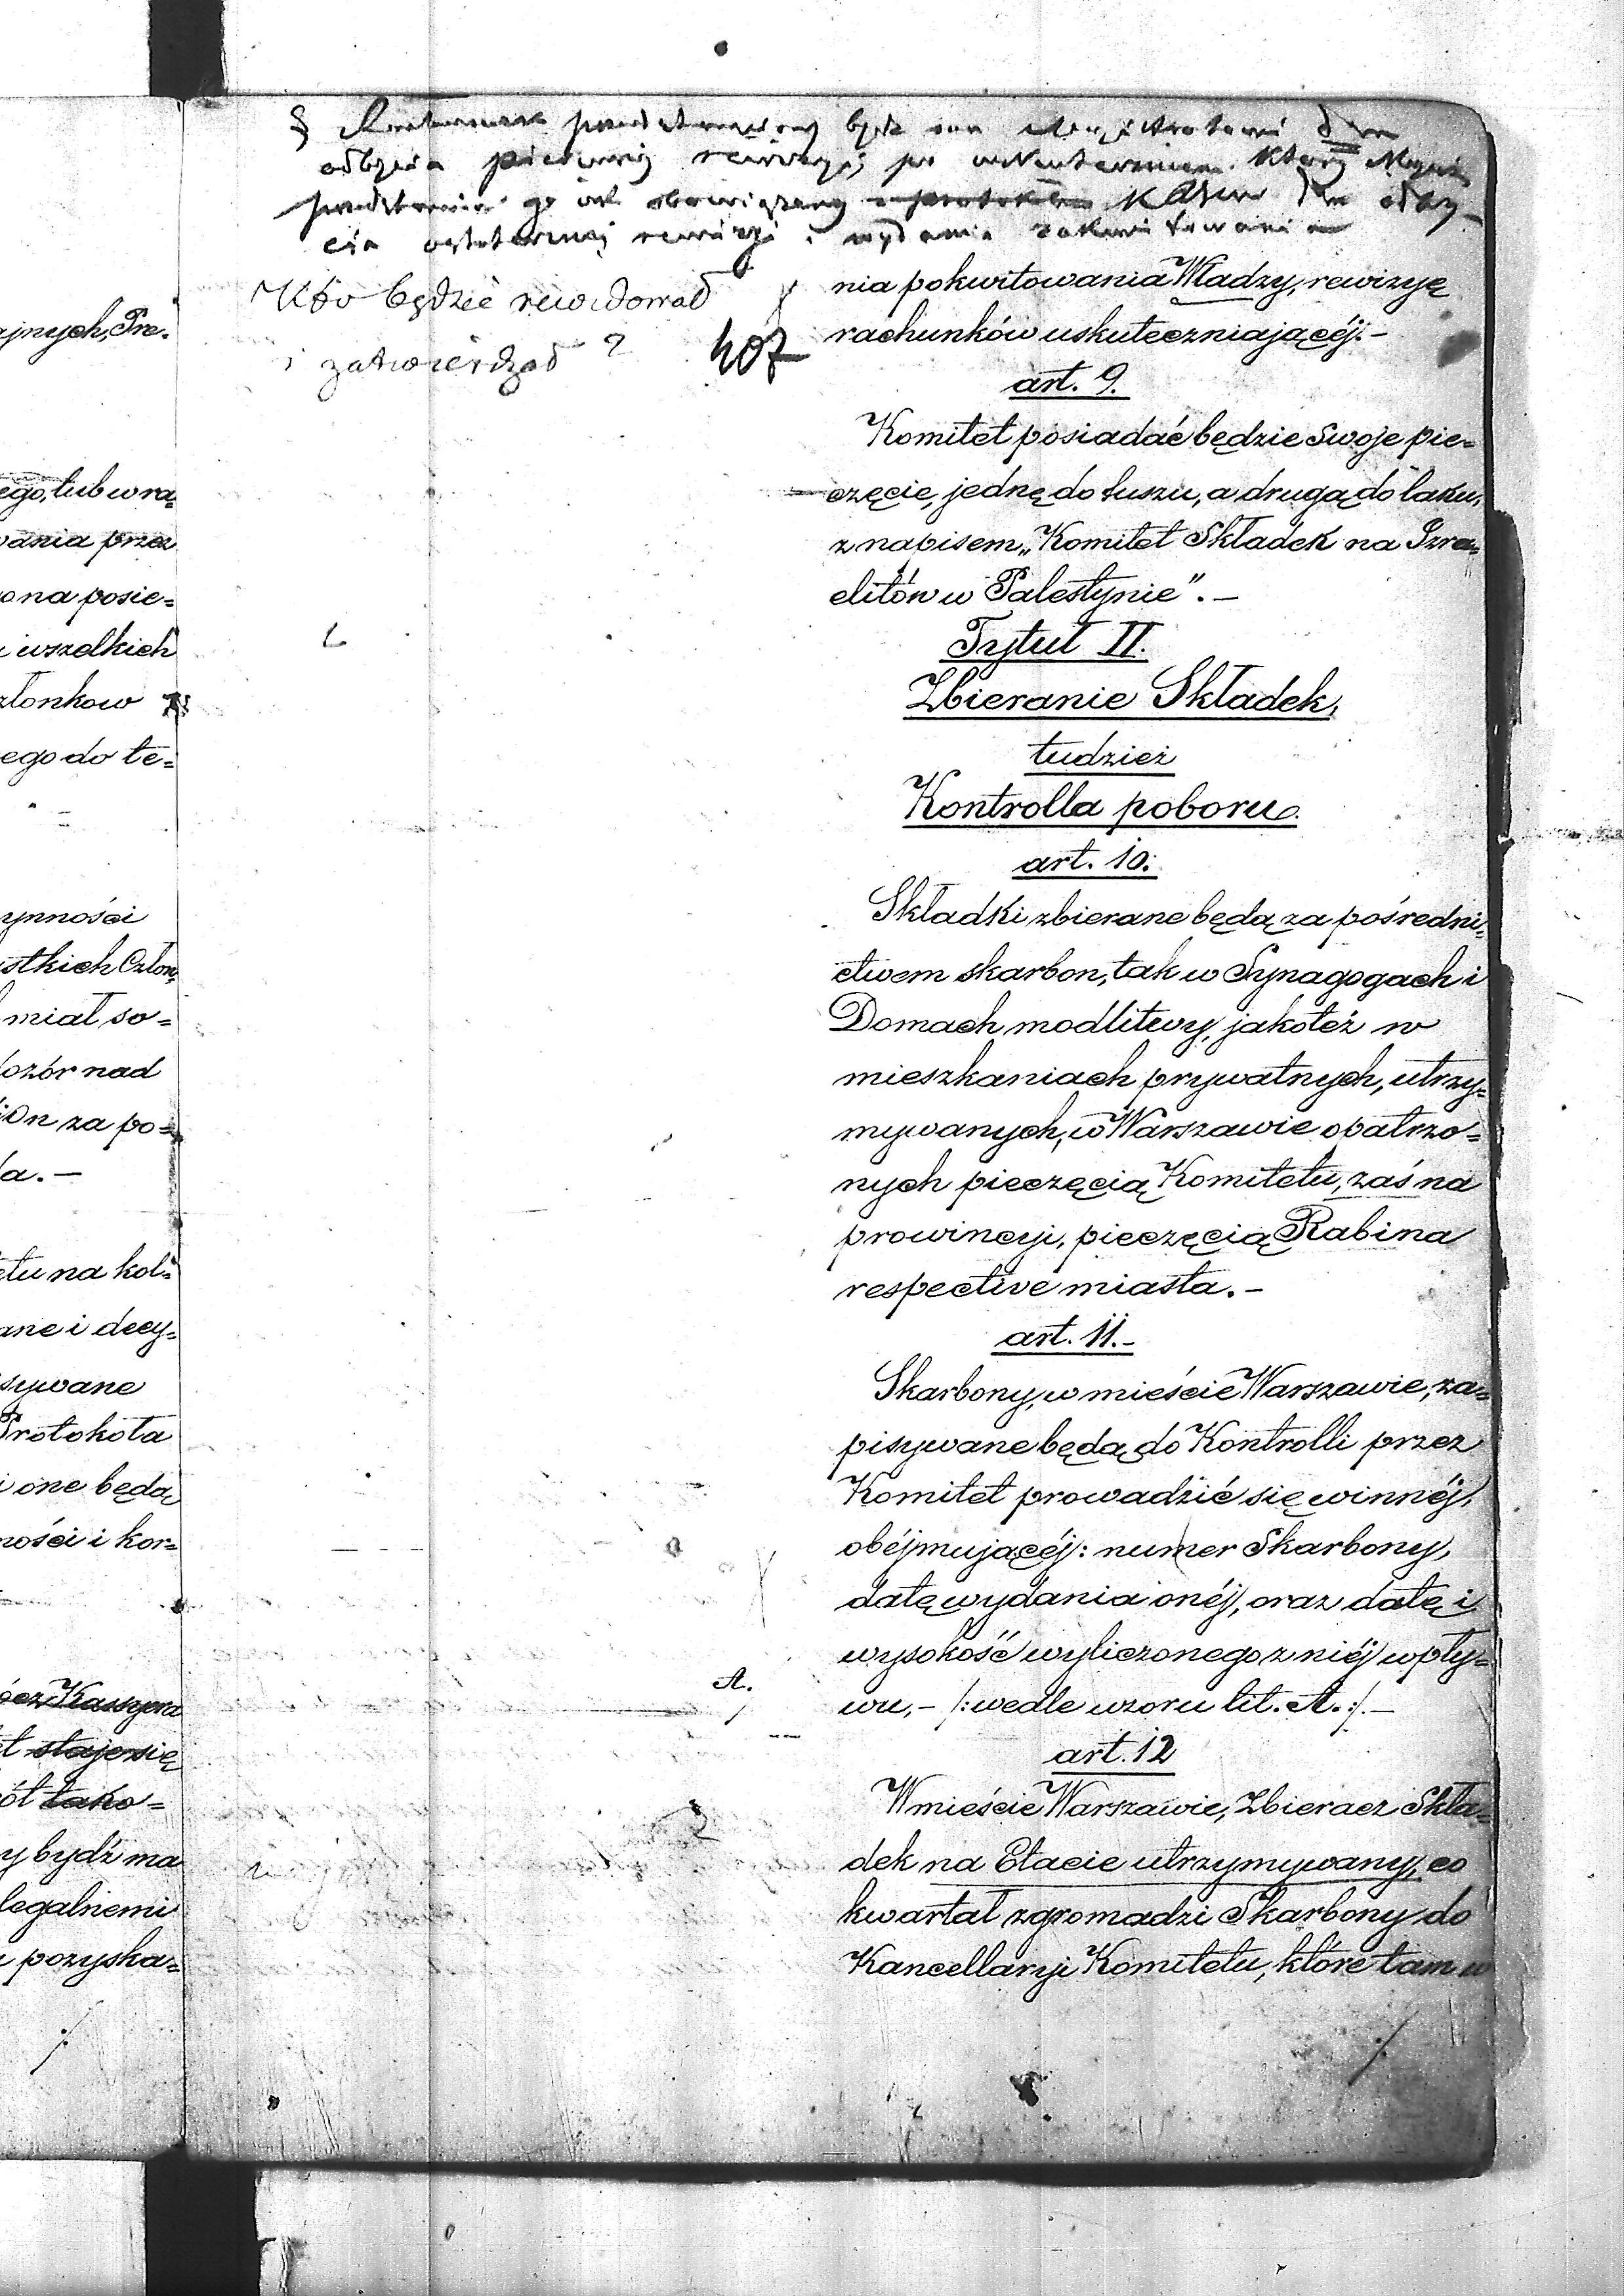 odbycia pierwszej rewizyi;
cia ostatecznej rewizyi i wydania zakwitowania
Kto będzie rewidował
i zatwierdzał ?
407
nia pokwitowania Władzy, rewizyę
rachunków uskuteczniającéj.–
art. 9.
Komitet posiadać będzie swoje pie=
częcie, jednę do tuszu, a drugą do laku,
z napisem „Komitet Składek na Izra=
elitów w Palestynie”.–
Tytuł II.
Zbieranie Składek,
tudzież
Kontrolla poboru.
art. 10.
Składki zbierane będą za pośredni=
ctwem skarbon, tak w Synagogach i
Domach modlitwy, jakoteż w
mieszkaniach prywatnych, utrzy=
mywanych, w Warszawie opatrzo=
nych pieczęcią Komitetu, zaś na
prowincyi, pieczęcią Rabina
respective miasta.–
art. 11.–
Skarbony, w mieście Warszawie, za=
pisywane będą do Kontrolli przez
Komitet prowadzić się winnéj,
obéjmującéj: numer Skarbony,
datę wydania onéj, oraz datę i
wysokość wyliczonego z niéj wpły=
A.
wu,– /: wedle wzoru lit. A. :/.–
art. 12
W mieście Warszawie, Zbieracz Skła=
dek na Etacie utrzymywany, co
kwartał zgromadzi Skarbony do
Kancellaryi Komitetu, które tam w
ajnych, Pre.
ego, lub w ra=
wania przez
ona posie=
i wszelkich
złonkow
ego do te=
ynności
stkich Człon=
miał so=
ozór nad
on za po=
a.–
etu na kol=
ane i decy=
sywane
Protokóła
i one będą
ności i kor=
ez Kassyera
t staje się
ół tako=
y bydź ma
legalnemi
pozyska=